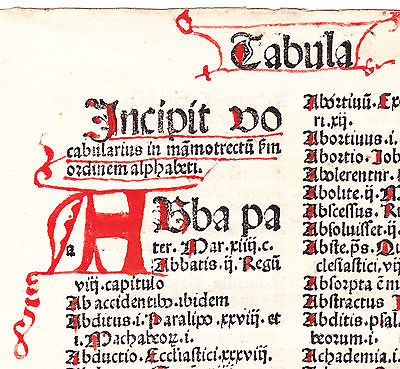 Tabula
Incipit vo
cabularius in mãmotrectũ ẜm
ordinem alphabeti.
a
ABba pa
ter. Mar. xiiij. c.
Abbatis. ij. Regũ
viij. capitulo
Ab accidentibꝰ. ibidem
Abditus. i. Paralipo. xxviij. et
i. Machabeoꝝ. i.
Abductio. Ecclīastici. xxviij.
Abortiuũ. Ex
ri. xij.
Abortiuus. i.
Abortio. Iob
Abolerentnr.
Abolite. ij. M
Abscessus. Ru
Absoluisset. ij
Abste֊pꝰ. Du
clesiastici. vij
Absorpta ē m
Abstractus
Abditis. psal.
beorum. i.
Achademia. i.